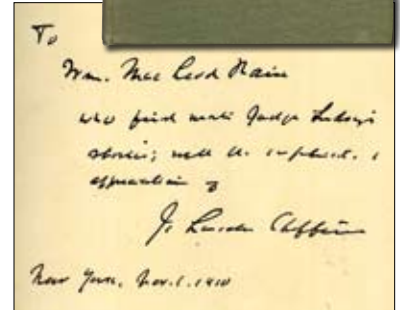 To
Wm. MacLeod Raine
who first wrote Judge Lindsey's
stories; with the
appreciation of
J. Lincoln Steffens
New York, Nov. 1. 1910